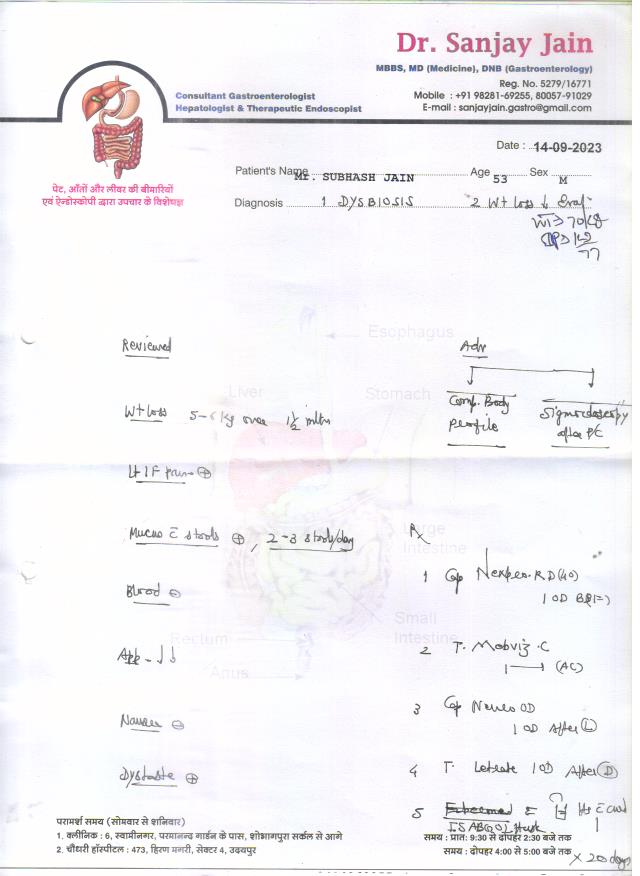 Dr. Sanjay Jain
MBBS, MD (Medicine), DNB (Gastroenterology)
Reg. No. 5279/16771
Mobile : +91 98281-69255, 80057-91029
E-mail : sanjayjain.gastro@gmail.com
Consultant Gastroenterologist
Hepatologist & Therapeutic Endoscopist
पेट, आँतों और लीवर की बीमारियों
एवं ऐन्डोस्कोपी द्वारा उपचार के विशेषज्ञ
Date : 14-09-2023
Patient's Name Mr. SUBHASH JAIN Age 53 Sex M
Diagnosis 1 DYSBIOSIS 2 Wt loss ↓
WT 70 kg
77
Reviewed
Adv
Comp. Body Profile
Sigmoidoscopy after
Wt loss 5-6 kg over 1½ mth
Lt IF pain ⊕
Mucus c̄ stools ⊕, 2-3 stools/day
Blood ⊖
App - ↓↓
Nausea ⊖
Dystaste ⊕
Rx
1 Cap RD (40)
1 OD
2 T. C
1 (AC)
3 Cap OD
1 OD After (L)
4 T. 1 OD After (D)
5 ISABGOL Husk
x 20 days
Esophagus
Liver
Stomach
Large
Intestine
Small
Intestine
Rectum
Anus
परामर्श समय (सोमवार से शनिवार)
1. क्लीनिक : 6, स्वामीनगर, परमानन्द गार्डन के पास, शोभागपुरा सर्कल से आगे समय : प्रात: 9:30 से दोपहर 2:30 बजे तक
2. चौधरी हॉस्पीटल : 473, हिरण मगरी, सेक्टर 4, उदयपुर समय : दोपहर 4:00 से 5:00 बजे तक